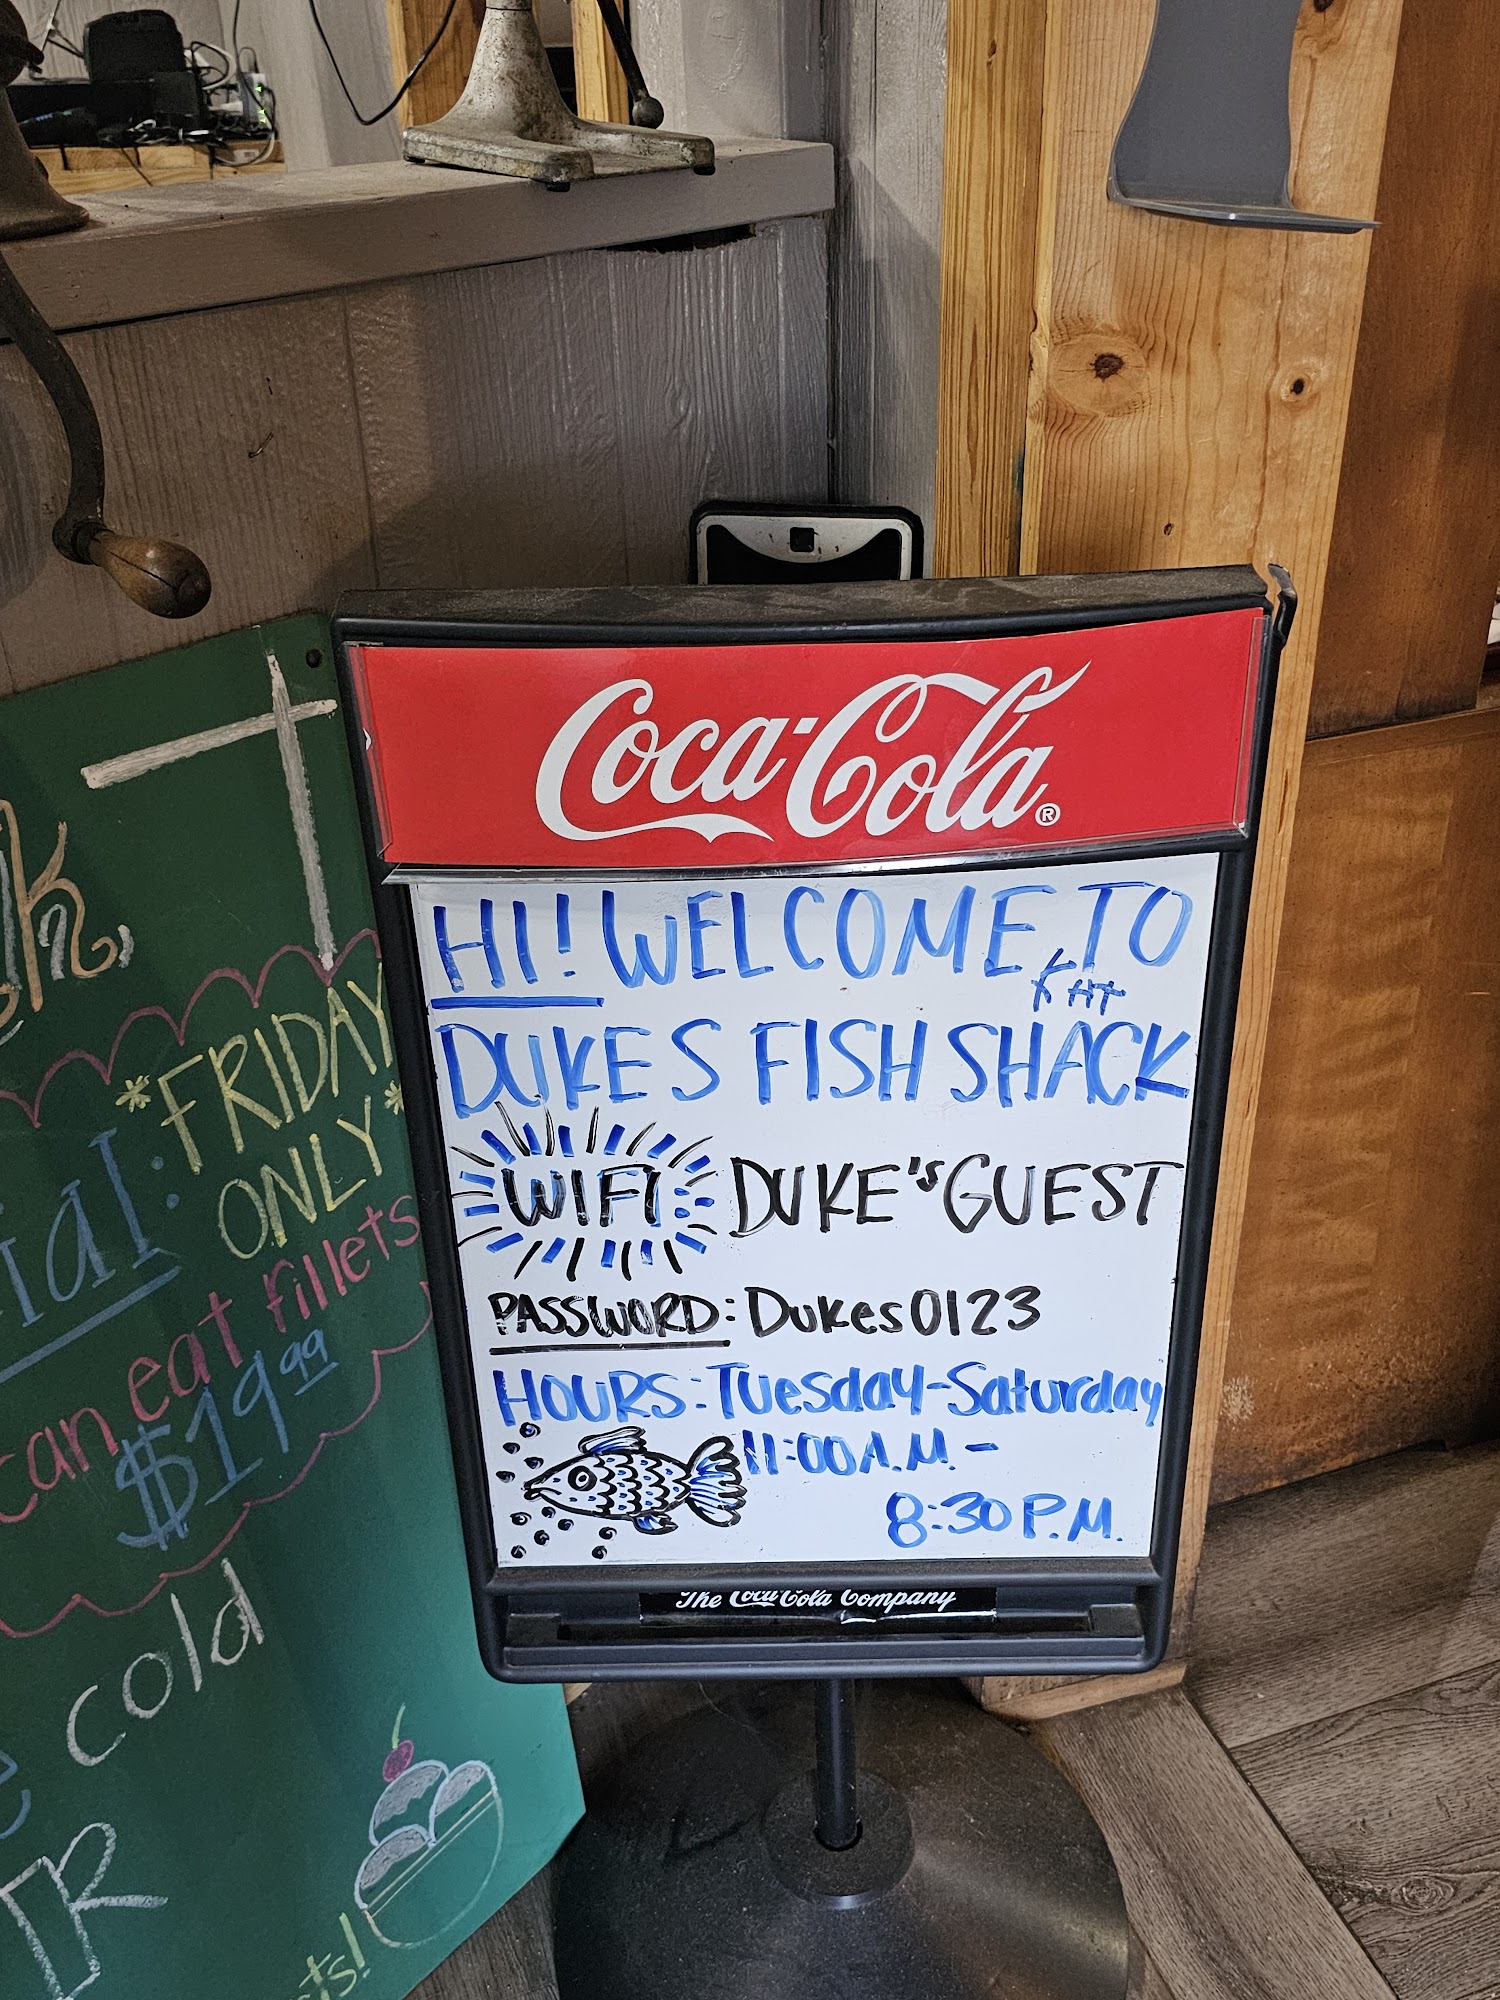 Coca-Cola®
HI! WELCOME TO
FAT
DUKES FISH SHACK
WIFI DUKE'S GUEST
PASSWORD: Dukes0123
HOURS: Tuesday-Saturday
11:00 A.M. -
8:30 P.M.
The Coca-Cola Company
*FRIDAY
ONLY*
can eat fillets
$19.99
cold